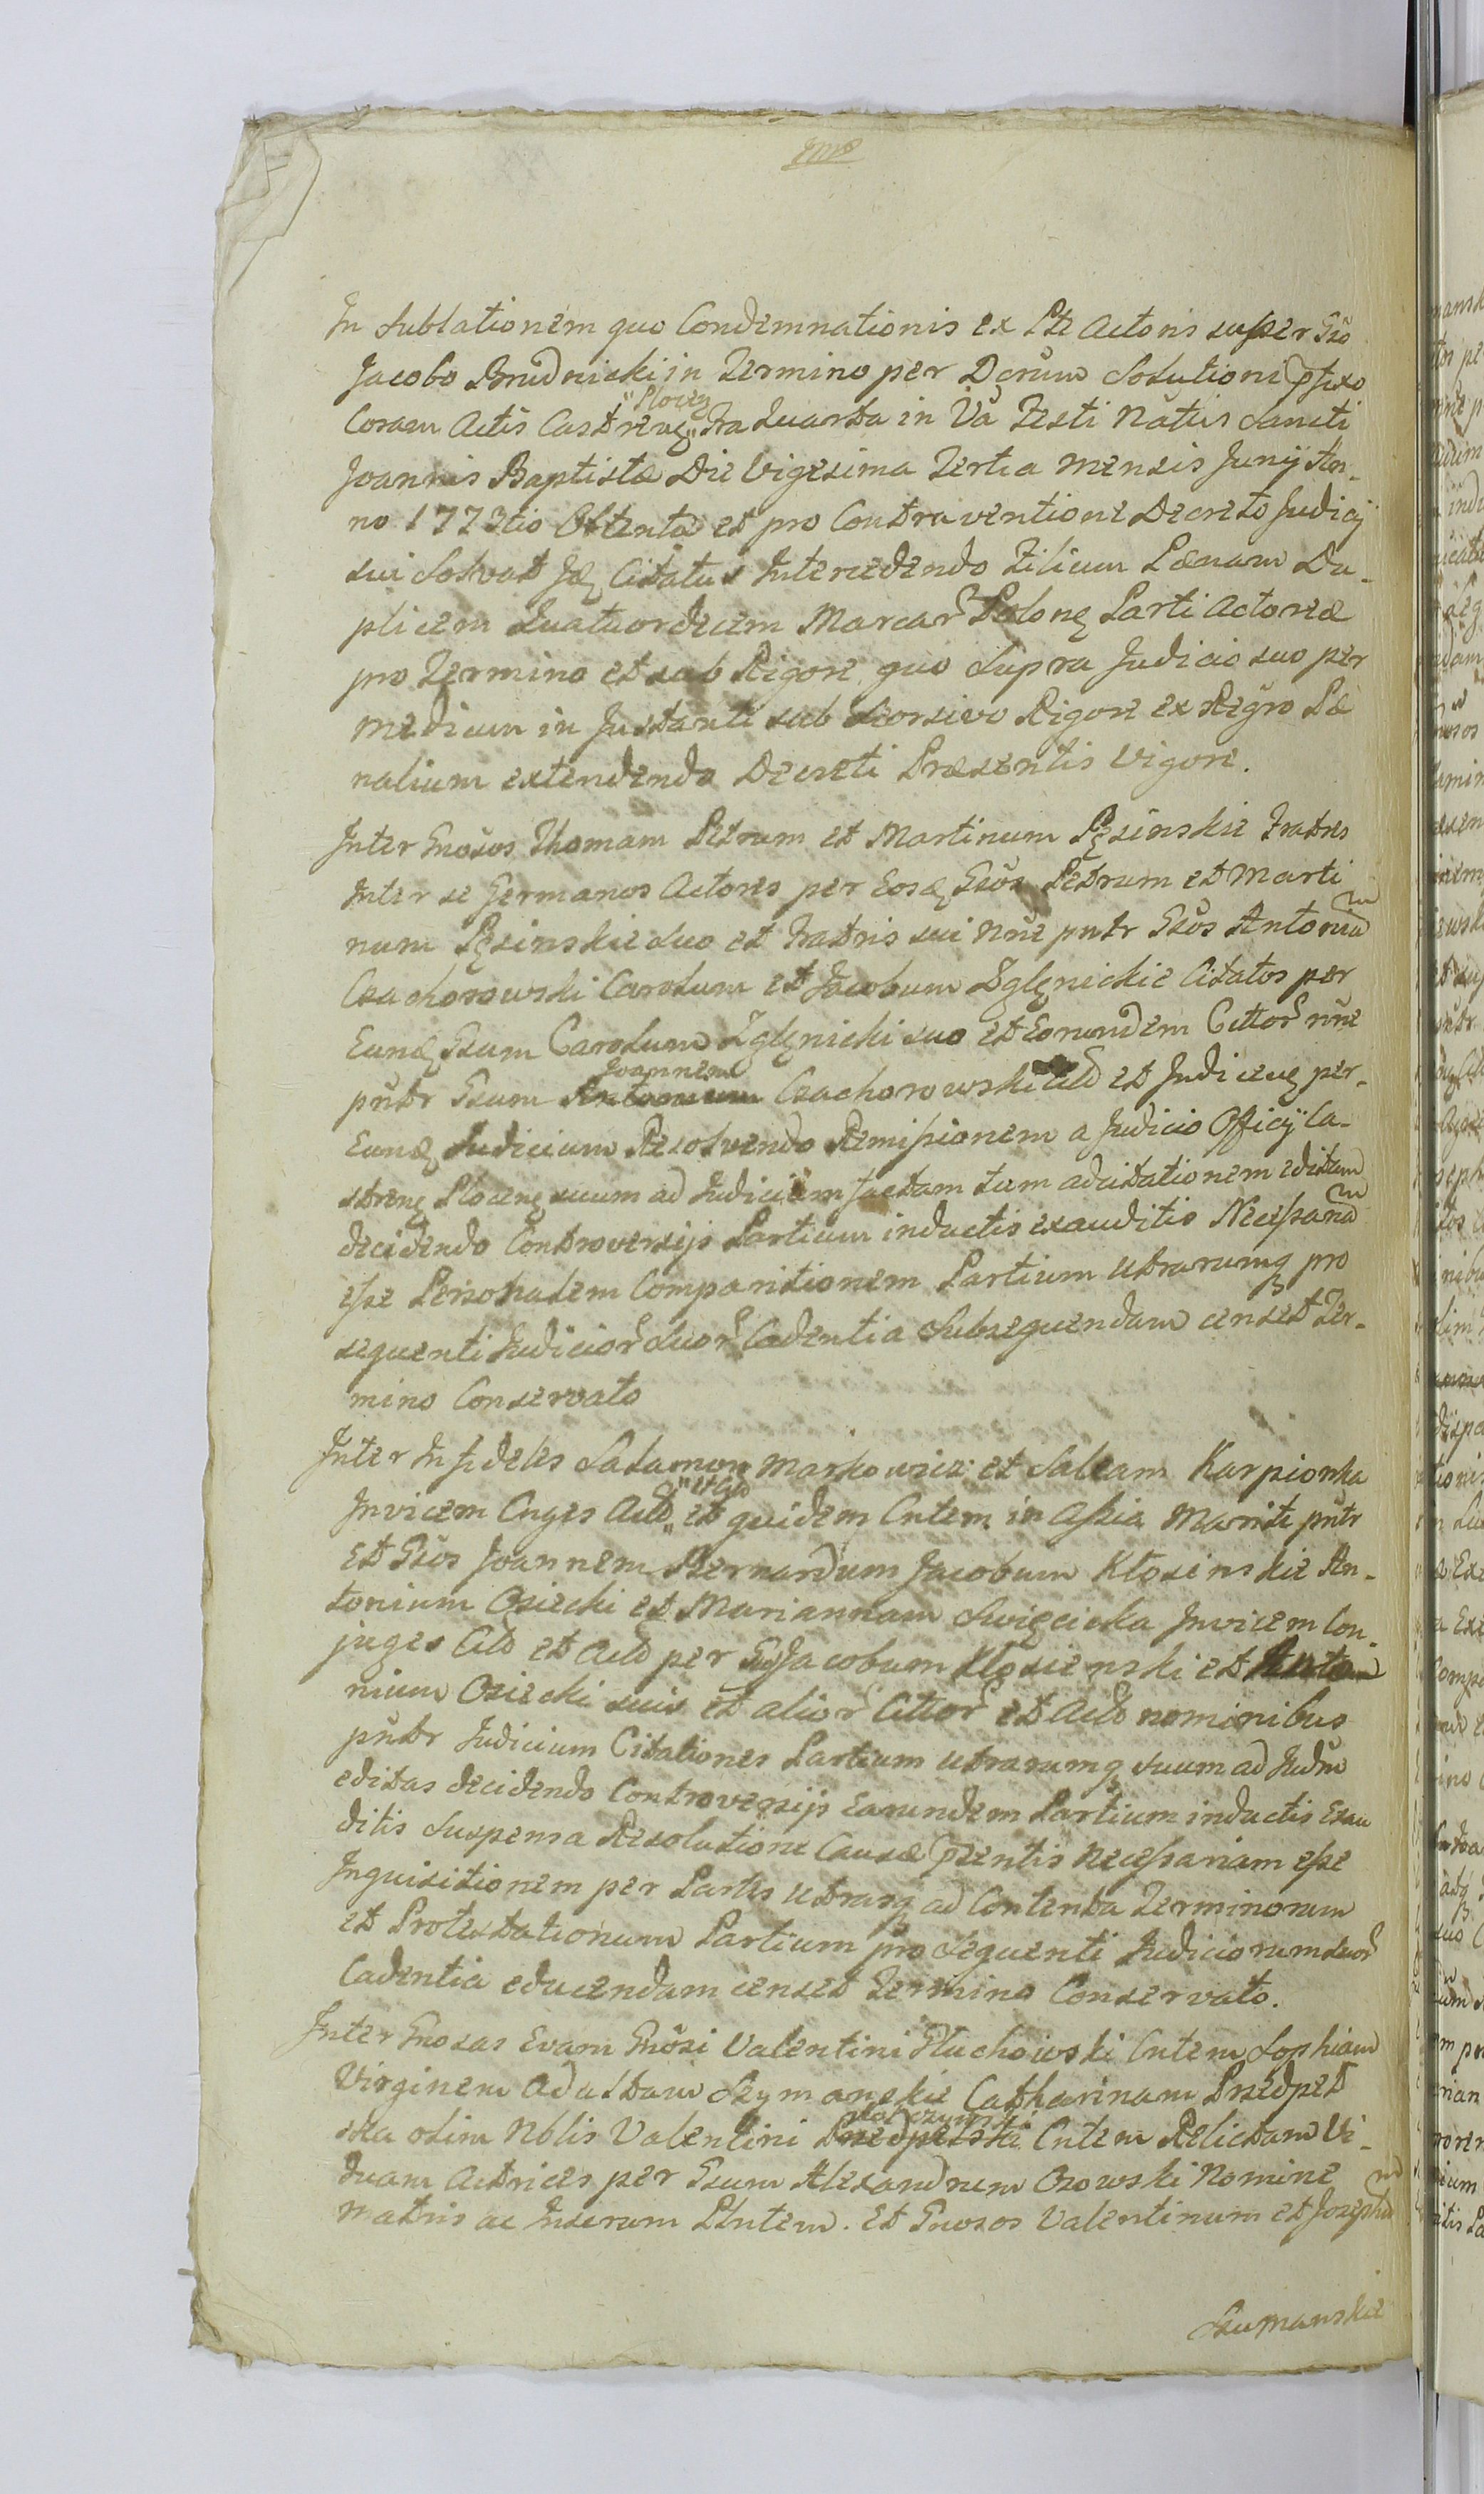 In sublationem quo Condemnationis ex Pte Actoris super Gso
Jacobo Brudnicki in Termino per Dcrum Solutioni pfixo
Coram Actis Castreng "Plocen" Fra Quarta in Va Festi Natiis Sancti
Joannis Baptistæ Die Vigesima Tertia mensis Junij An-
no 1773tio Obtenta et pro Contraventione Decreto Judicij
sui Solvat Citatus Intercedendo Filium Pænam Du-
plicem Quatuordecim Marcar Polonę Parti Actoreæ
pro Termino et sub Rigore quo Supra Judicio suo per
medium in Instanti sub Seorsivo Rigore ex Regro Pæ
nalium extendendo Decreti Præsentis Vigore.
Inter Gnosos Thomam Petrum et Martinum Pęsinskie Fratres
Inter se Germanos Actores per Eosq Gsos Petrum et Marti
num Pęsinskie suo et Fratris sui nne pntr Gsos Antoniu m
Czachorowski Carolum et Jacobum Zglęnickie Citatos per
Eunq Gsum Carolum Zglęnicki suo et Eorundem Cittor nne
pntr Gsum Joannem Czachorowski Citd et Judiceq per-
Eunq Judicium Resolvendo Remissionem a Judicio Officij Ca-
streng Ploceng suum ad Judicium factam tum ad citationem editam
decidendo Controversijs Partium inductis exauditis Necessaria m
esse Personalem Comparitionem Partium utrarumq pro
sequenti Judicior Suor Cadentia Subsequendam censet Ter-
mino Conservato
Inter Infideles Salamon Markowicz et Saleam Karpionka
Invicem Cnges Actd "et Citd" et quidem Cntem in Assia Mariti pntr
Et Gsos Joannem Bernardum Jacobum Kłosinskie An-
tonium Osiecki et Mariannam Swięcicka Invicem Con-
juges Citd et Actd per Gs Jacobum Kłosienski et Anto
nium Osiecki suis et alior Cittor et Actd nominibus
pntr Judicium Citationes Partium utrarumq suum ad Judm
editas decidendo Controversijs Earundem Partium inductis Exau
ditis Suspensa Resolutione Causæ pæntis Necessariam esse
Inquisitionem per Partes utrasq ad Contenta Terminorum
et Protestationum Partium pro Sequenti Judiciorum suor
Cadentia educendam censet Termino Conservato.
Inter Gnosas Evam Gnosi Valentini Głuchowski Cntem Sophiam
Virginem Adultam Szymanskie Catharinam Przedpeł
ska olim Nblis Valentini Cntem Relictam Vi-
duam Actrices per Gsum Alexandrum Ozowski Nomine
Matris ac Pntem. Et Gnosos Valentinum et Josephu m
Szumanskie